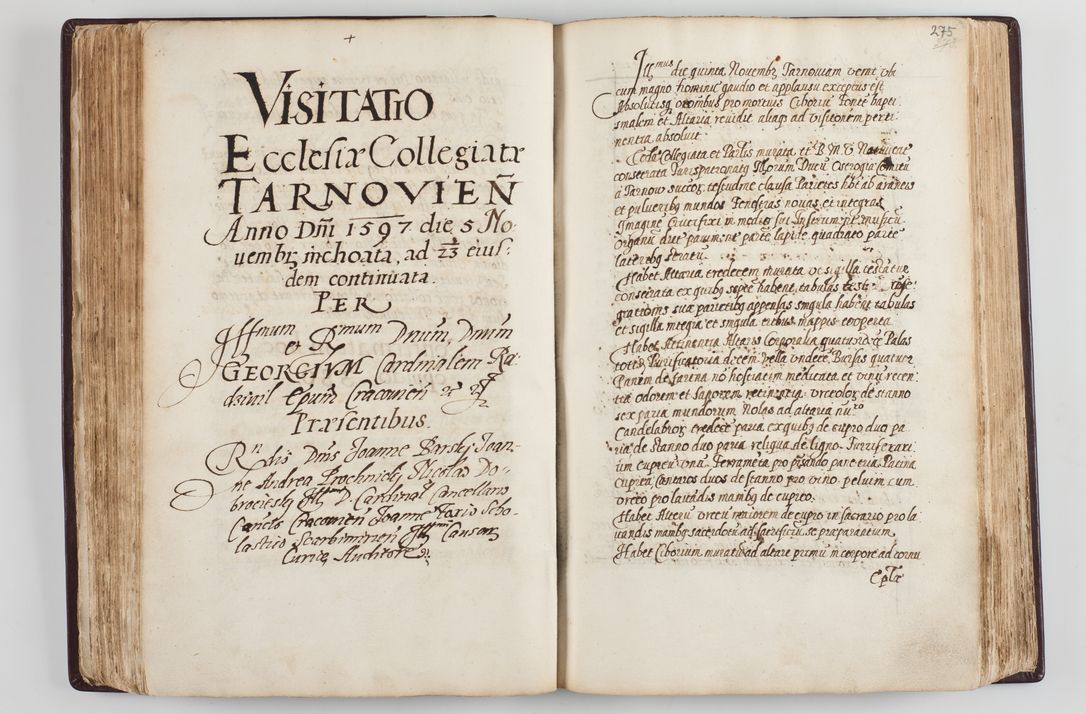 +
VISITATIO
Ecclesiæ Collegiatæ
TARNOVIEÑ
Anno Dñi 1597 die 5 No
uembr inchoata, ad 23 eius
dem continuata.
PER
Illmum et Rmum Dnum, Dnum
GEORGIVM Cardinalem Ra
dziuil Epum Cracouien
Præsentibus.
Rndis Dnis Joanne Barskj Joan
ne Andrea Prochnickj Nicolao Do
brocieskj Illmi D. Cardinal Cancellario
Cancis Cracouien Joanne Foxio Scho
lastico Scarbimirien Illmi Causar
Curiæ Auditore
275
Illmus die quinta Novembr Tarnouiam venit vbi
cum magno hominum gaudio et applausu exceptus est
Absolutisq; oronibus pro mortuis Ciboriũ Fonte bapti
smalem et Altaria reuidit aliaq; ad visitonem perti
nentia absoluit.
Ecclia Collegiata et Parlis murata, et B M V Natiuitate
consecrata Jurispatronatq Ducũ Ostrogiæ Comitũ
à Tarnow succoz, testudine clausa Parietes hbt ab araneis
et pulueribq mundos Fenestras nouas, et integras
Imagine Crucifixi in medio
Organũ pauimentũ parte lapide quadrato parte
lateribq stratũ.
Habet Altaria tredecem murata
consecrata ex quibq habent tabulas
suæ parietibq appensas singula habent tabulas
et sigilla integra et singula tribus mappis cooperta
Habet Attinentia Altaris Corporalia quatuordecẽ Palas
totẽ Purificatoria decem, Vella vndecẽ, Bursas quatuor
Panem de farina nõ hostiatim medicata, et vinũ recen
tia odorem et saporem retinentia, vrceoloz de stanno
sex paria mundorum Nolas ad altaria nuo
Candelabroz tredecẽ paria ex quibq de cupro duo pa
ria de stanno duo paria reliqua de ligno. Turriferari
um cupreũ vnũ. Ferramẽta pro pane tria Patina
cuprea, Cantaros duos de stanno pro vino, peluim cum
orceo pro lauãdis manibq de cupro.
Habet Alterũ orceũ maiorem de cupro in sacrario pro la
uandis manibq sacerdotũ ad sacrificiũ se præparantium
Habet Ciborium muratũ ad altare primũ in corpore ad cornu
Eplæ